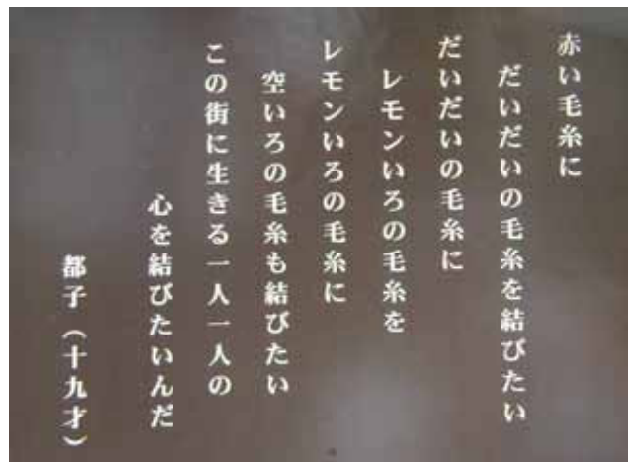 赤い毛糸に
だいだいの毛糸を結びたい
だいだいの毛糸に
レモンいろの毛糸を
レモンいろの毛糸に
空いろの毛糸も結びたい
この街に生きる一人一人の
心を結びたいんだ
都子（十九才）